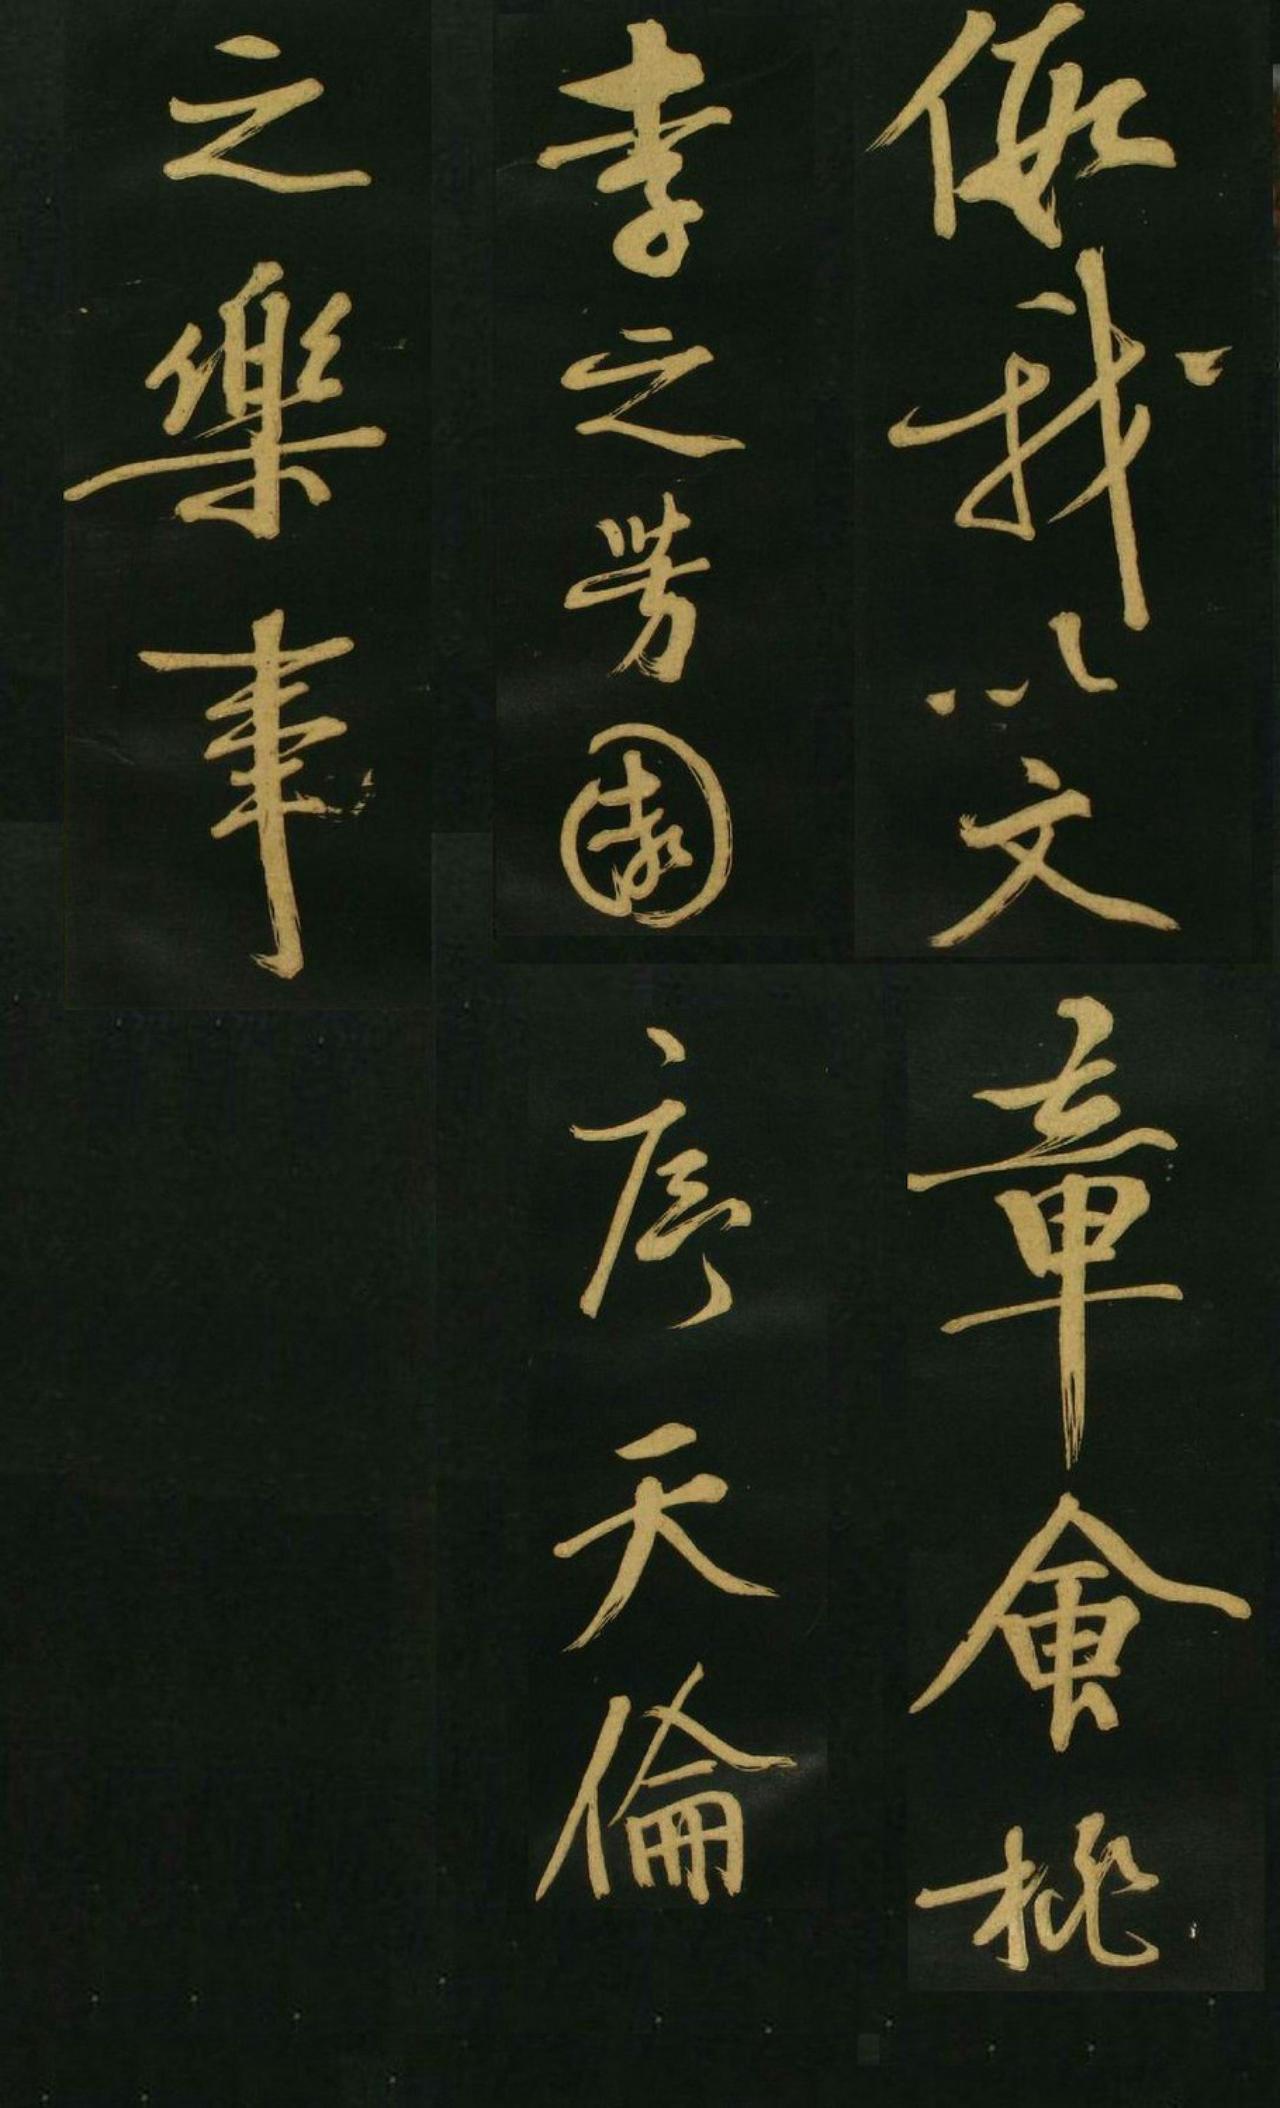 假我以文章會桃
李之芳園序天倫
之樂事